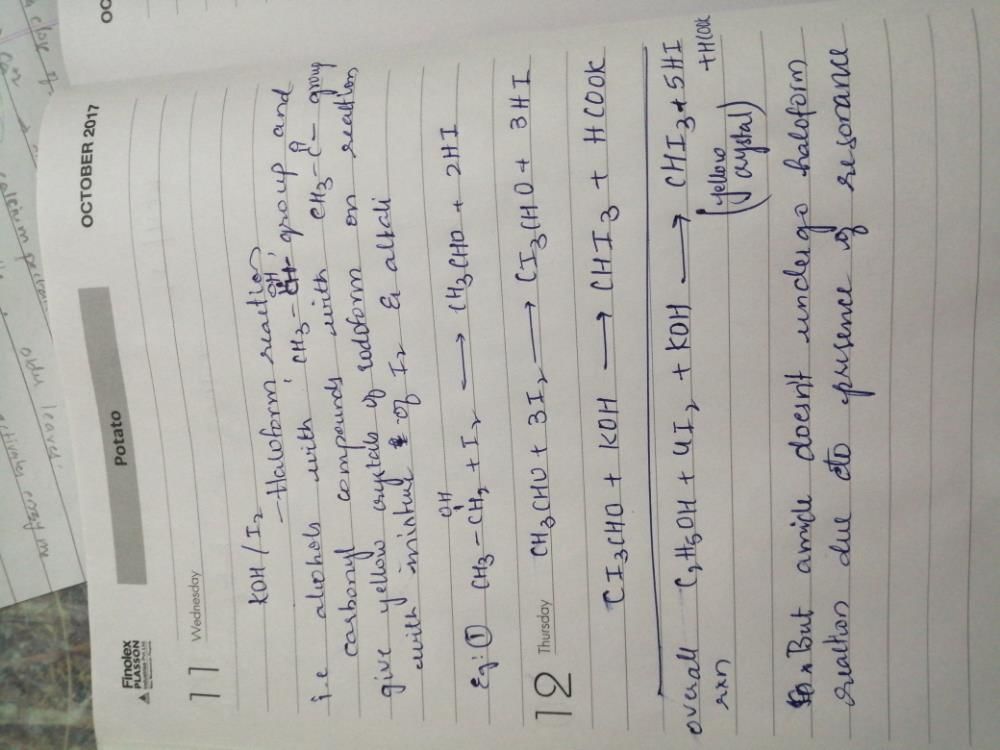 OCTOBER 2017
Potato
Finolex
PLASSON
11 Wednesday
KOH / I2
- Haloform reaction
i.e alcohols with, CH3 - CH - group and
OH
carbonyl compounds with CH3 - C - group
O
give yellow crystals of iodoform on reaction
with mixture of I2 & alkali
OH
Eg: ① CH3 - CH2 + I2 → CH3CHO + 2HI
12 Thursday
CH3CHO + 3I2 → CI3CHO + 3HI
CI3CHO + KOH → CHI3 + HCOOK
overall C2H5OH + 4I2 + KOH → CHI3 + 5HI
rxn
+ HCOOK
(yellow
crystal)
* But amide doesn't undergo haloform
reaction due to presence of resonance